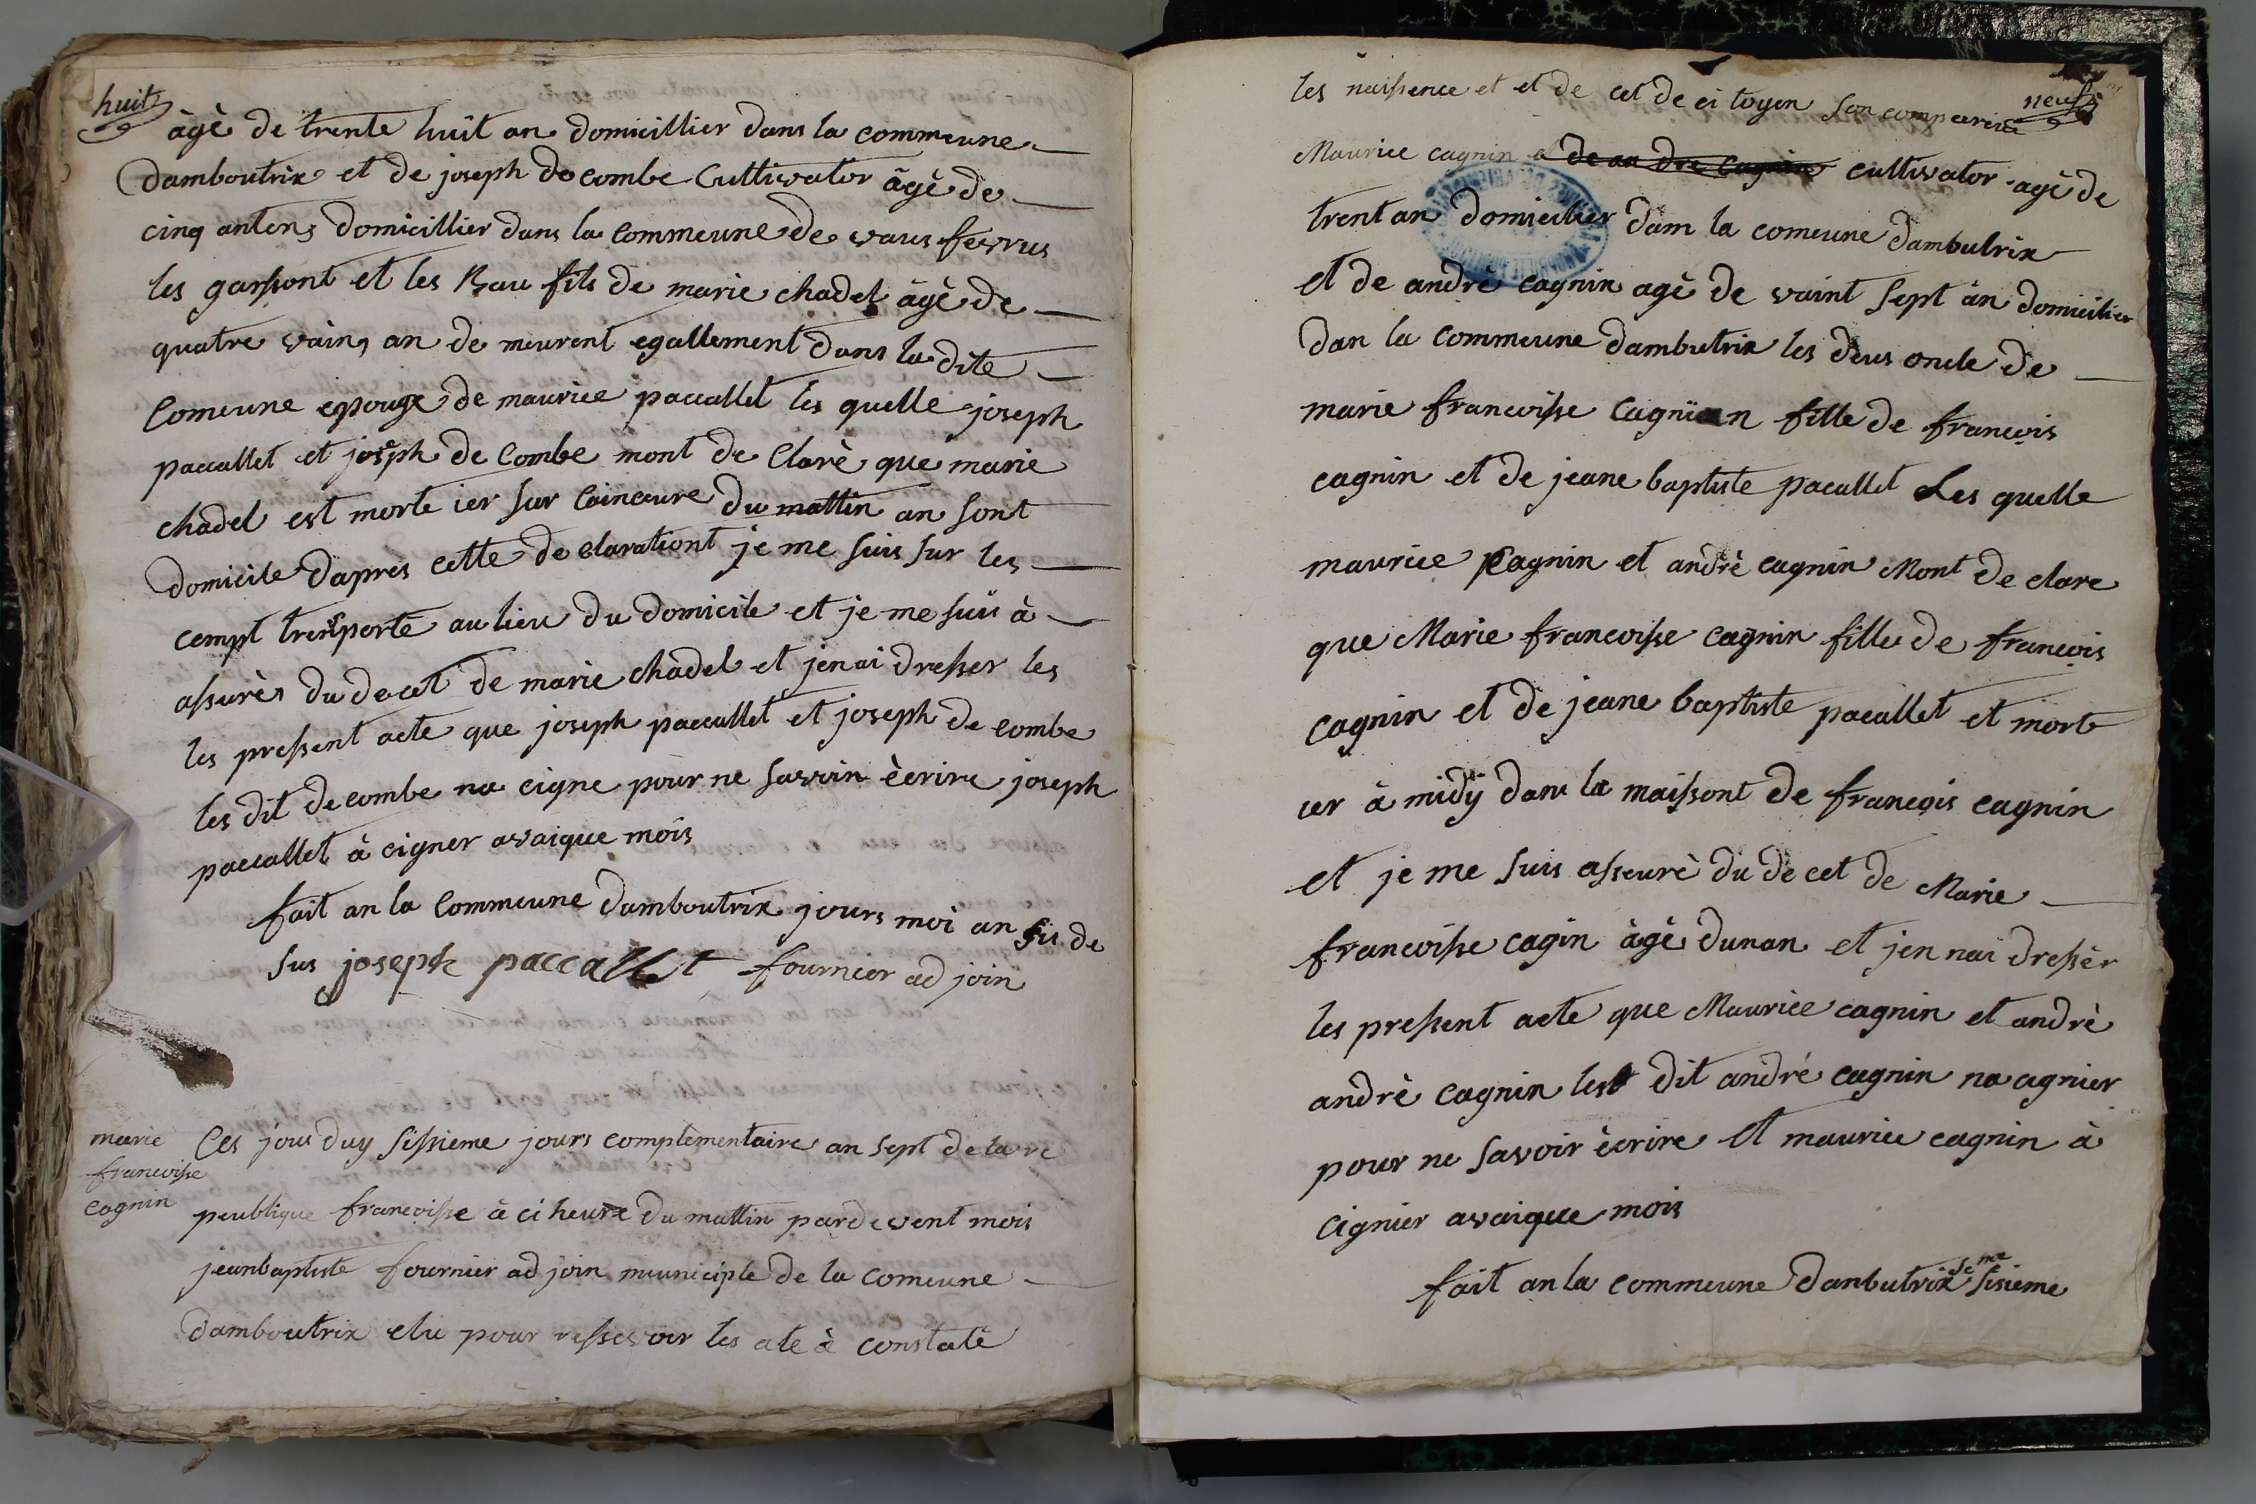 huit
âgè de trente huit an domicillier dans la commeune
damboutrix et de joseph de combe Cultivator âgè de
cinq antens domicillier dans la Commeune de vaus fevrus
les garssont et les Bau fils de marie chadel âgè de
quatre vainq an de meurent egallement dans la dite
Comeune epouge de maurice paccallet les quelle joseph
paccallet et joseph de Combe mont de Clarè que marie
chadel est morte ier sur Cainceure du mattin an sont
domicile dapres cette de clarationt je me suis sur les
cempt trensporte au lieu du domicile et je me suis à
assurès du decet de marie chadel et jenai dresser les
les pressent acte que joseph paccallet et joseph de combe
les dit de combe na cigne pour ne savoir ècrire joseph
paccallet à cigner avaique mois
fait an la Commeune damboutrix jours moi an sis de
sus joseph paccallet fournier ad join
marie
francoisse
cagnin
Ces jour duy sissieme jours complementaire an sept de la re
peublique francoisse à ci heure du mattin pardevent mois
jeanbaptiste fournier ad join meuniciple de la comeune
damboutrix elu pour ressevoir les ate à constatè
neuf
les naissence et et de cet de ci toyen son comparu
Maurice cagnin a de an dre cagnin cultivator agè de
trent an domicilier dam la comeune dambutrix
et de andrè cagnin agè de vaint sept àn domicilier
dan la commeune dambutrix les deus oncle de
marie francoisse cagnin fille de francois
cagnin et de jeane baptiste pacallet Les quelle
maurice cagnin et andrè cagnin Mont de clare
que Marie francoisse cagnin fille de francois
cagnin et de jeane baptiste pacallet et morte
ier à midy dans la maissont de francois cagnin
et je me suis asseurè du de cet de Marie
francoisse cagin àgè dunan et jen nai dressèr
les pressent acte que Maurice cagnin et andrè
andrè cagnin les dit andré cagnin na cignier
pour ne savoir ècrire et maurice cagnin à
cignier avaique mois
fait an la commeune danbutrix se me sisieme